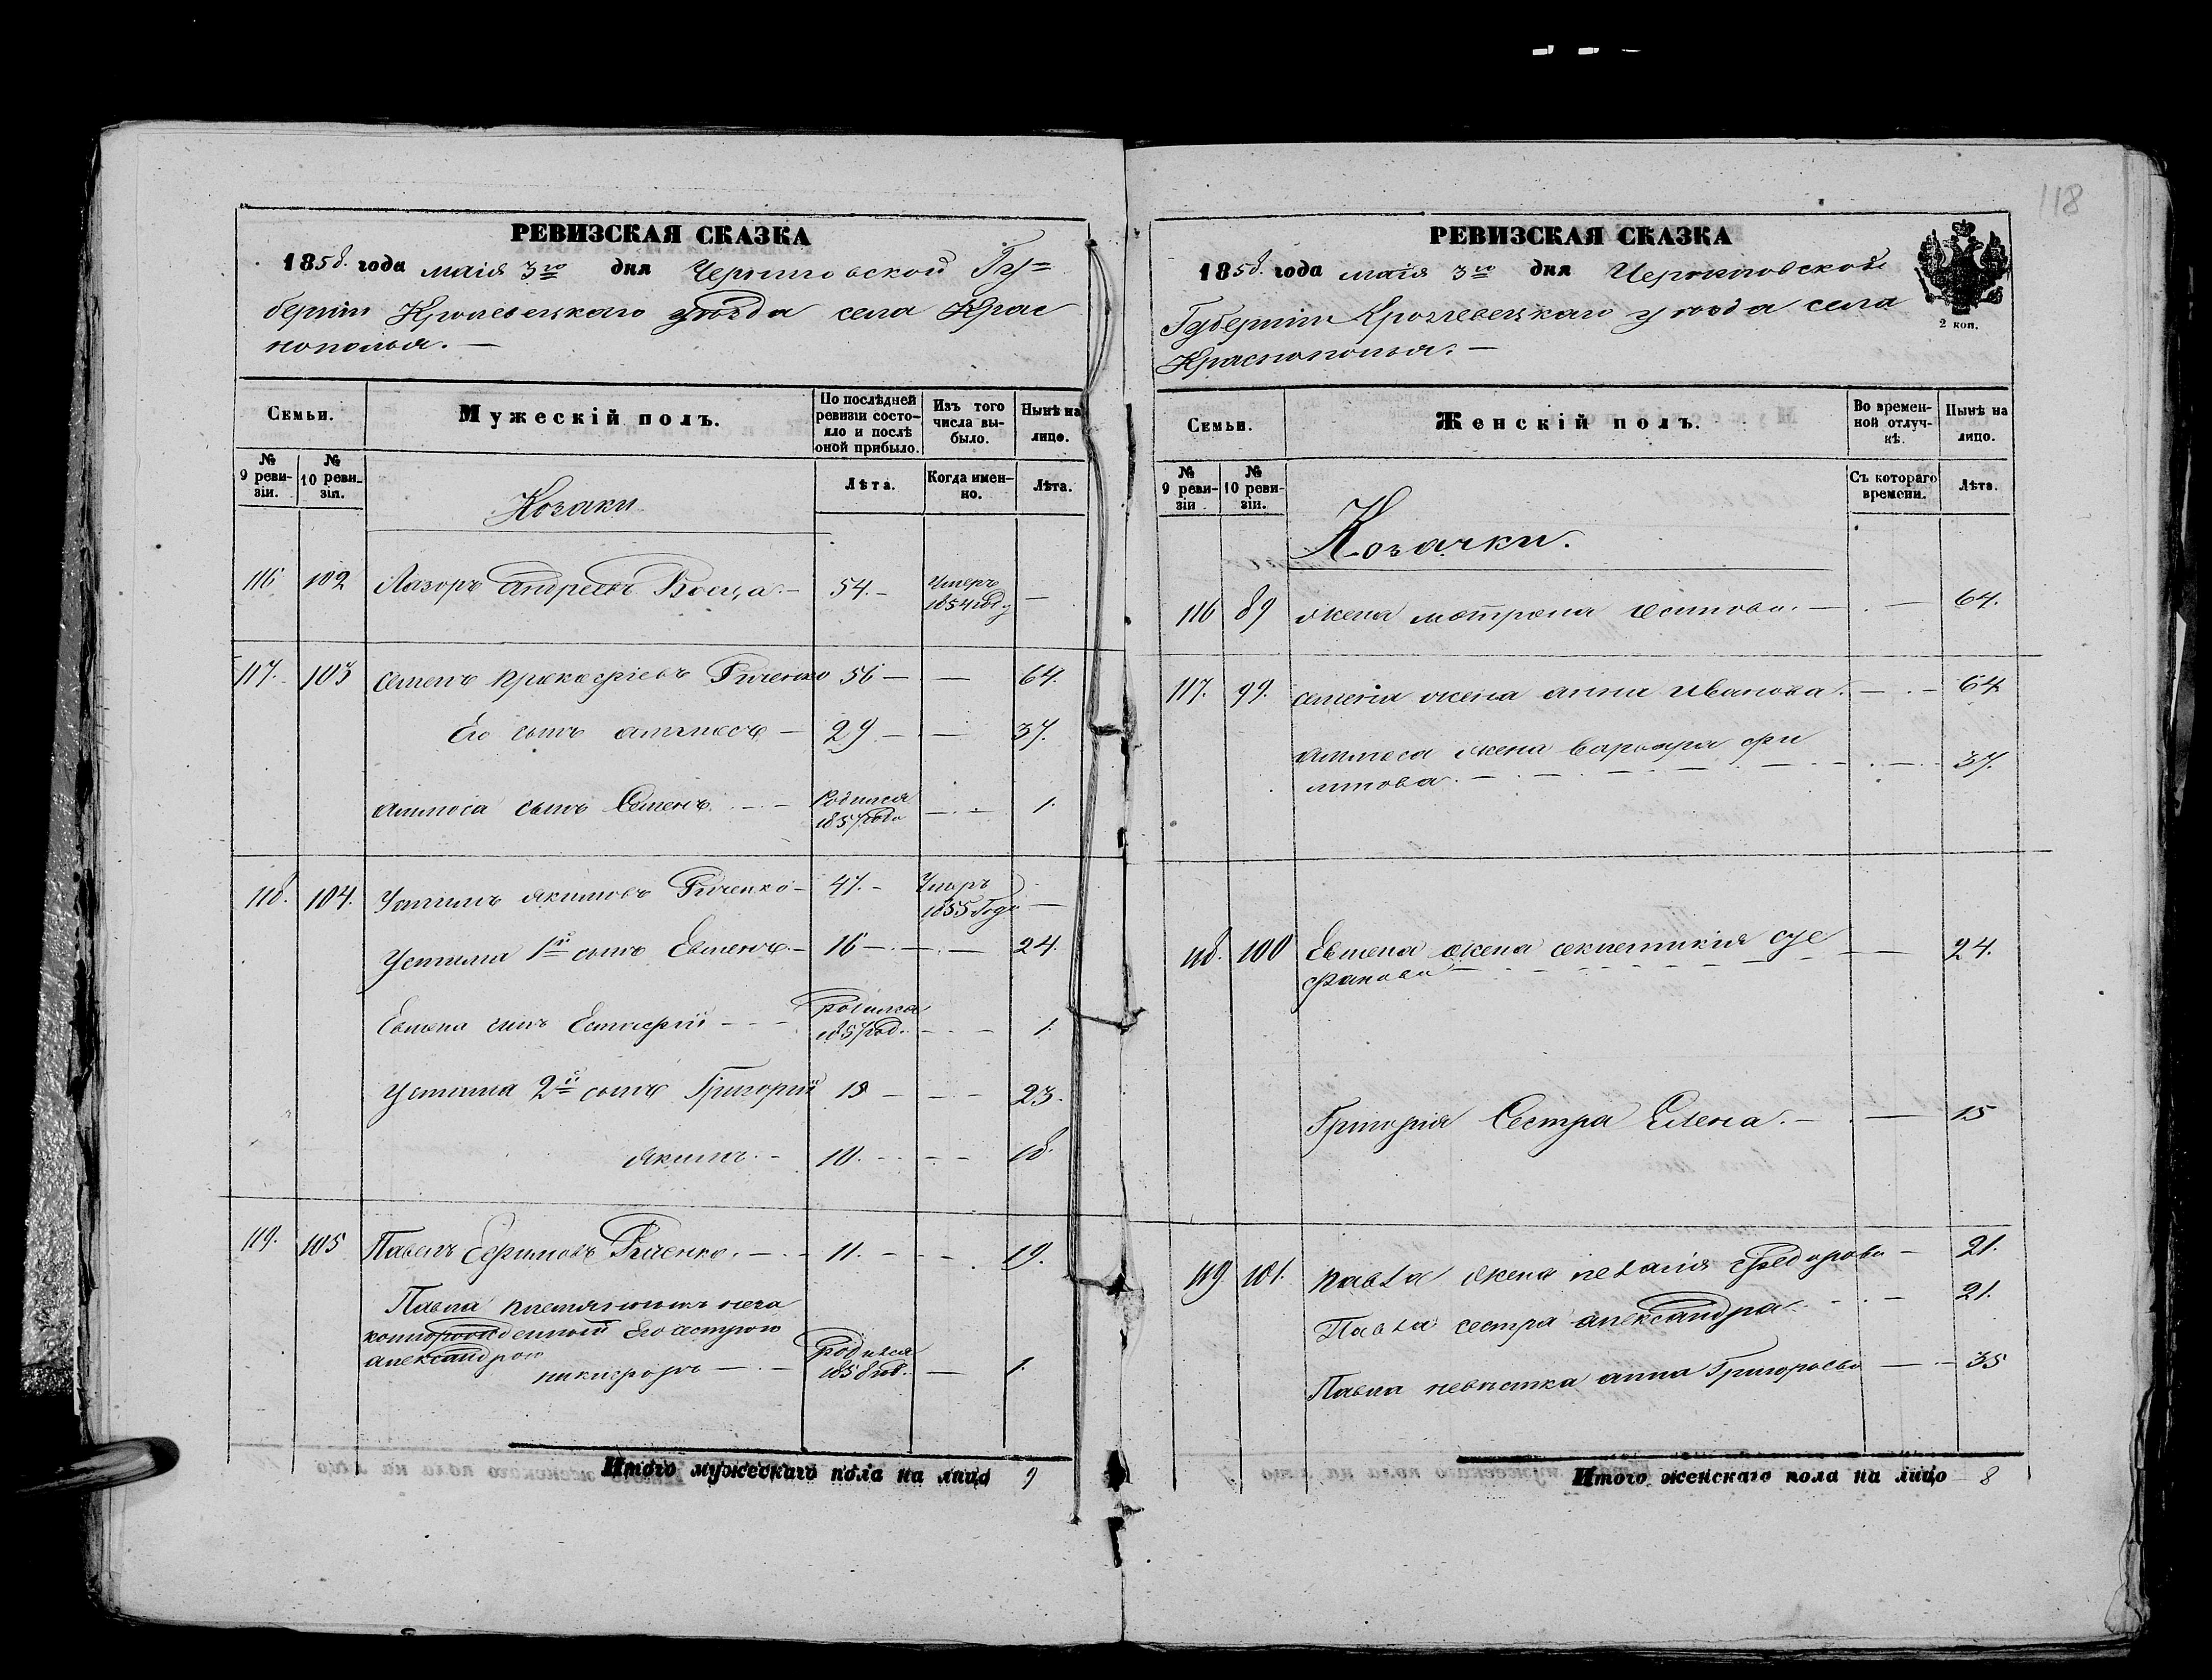 118
РЕВИЗСКАЯ СКАЗКА
1858. года маія 3го дня Черниговской Гу=
берніи Кролевецкаго уѣзда села Крас
нополья. —
Семьи.
Мужескій полъ.
По послѣдней ревизіи состояло и послѣ оной прибыло.
Изъ того числа выбыло.
Нынѣ на лице.
№ 9 ревизіи.
№ 10 ревизіи.
Козаки
Лѣта.
Когда именно.
Лѣта.
116 102 Лазоръ Андреевъ 54. — Умеръ 1854 году —
117. 103 Семенъ Прокофіевъ 56 — — 64.
Его сынъ 29 — — 37.
сынъ Семенъ. — Родился 1857 года — 1.
118. 104. Устимъ Якимовъ 47. — Умеръ 1855 году —
Устима 1й сынъ Евменъ — 16 — — 24.
Евмена сынъ Родился 1857 год. — 1.
Устима 2й сынъ Григорій 15 — — 23.
Якимъ. — 10. — — 18.
119. 105 Павелъ Ефимовъ — 11. — — 19.
Павла племянникъ неза
конорожденный Его сестрою
Александрою
Никифоръ — Родился 1858 год. — 1.
Итого мужескаго пола на лицо 9
РЕВИЗСКАЯ СКАЗКА
1858. года маія 3го дня Черниговской
Губерніи Кролевецкаго уѣзда села
Краснополья. —
2 коп.
Семьи.
Женскій полъ.
Во временной отлучкѣ.
Нынѣ на лицо.
№ 9 ревизіи
№ 10 ревизіи.
Козачки.
Съ котораго времени.
Лѣта.
116 89 жена Мотрона — — 64.
117. 99. Семена жена Анна Иванова. — — 64
жена Варвара Фи
липова. — 37.
118. 100 Евмена жена
— 24.
Григорія Сестра Елена. — — 15
119 101. Павла жена Федорова — 21.
Павла сестра Александра. — 21.
Павла невѣстка Анна Григорьева — 35
Итого женскаго пола на лицо 8